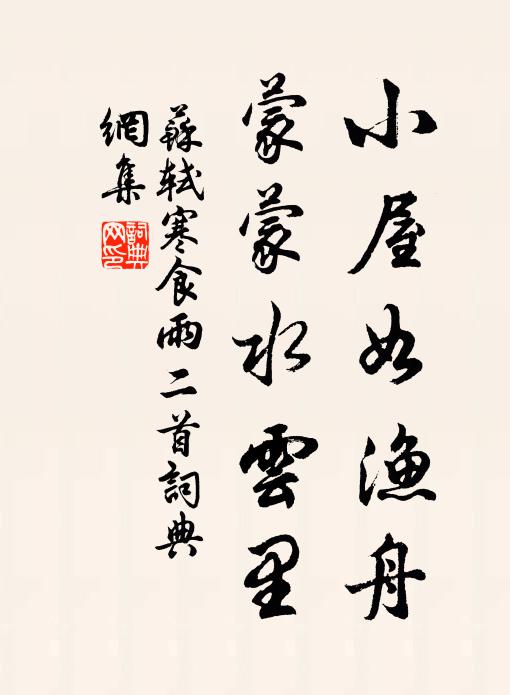 小屋如漁舟
蒙蒙水雲里
蘇軾寒食雨二首詞典
網集
詞典
网印